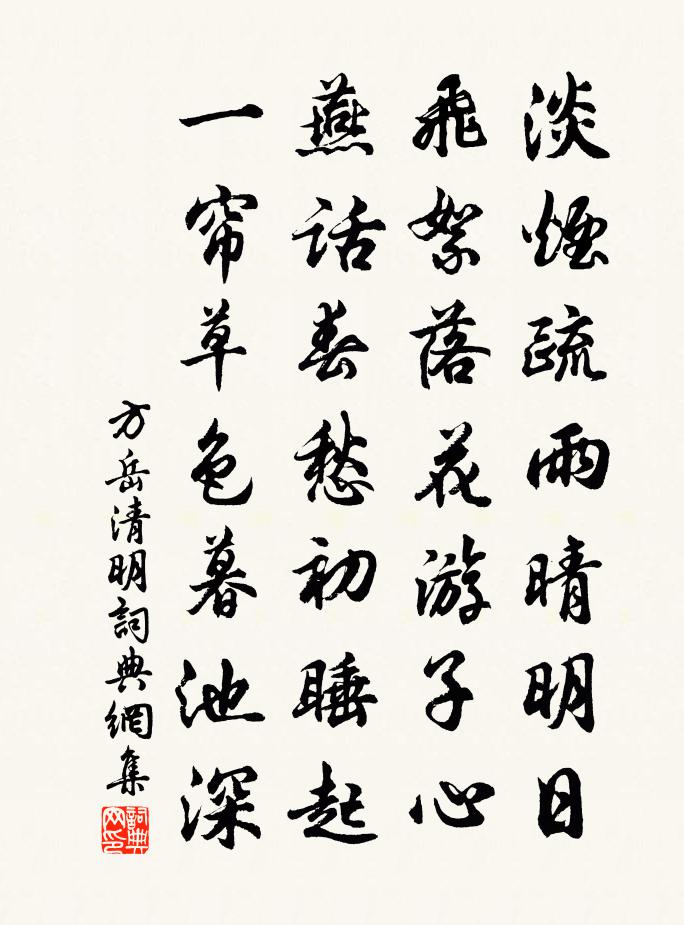 淡煙疏雨晴明日
飛絮落花游子心
燕話春愁初睡起
一帘草色暮池深
方岳清明詞典網集
詞典網印